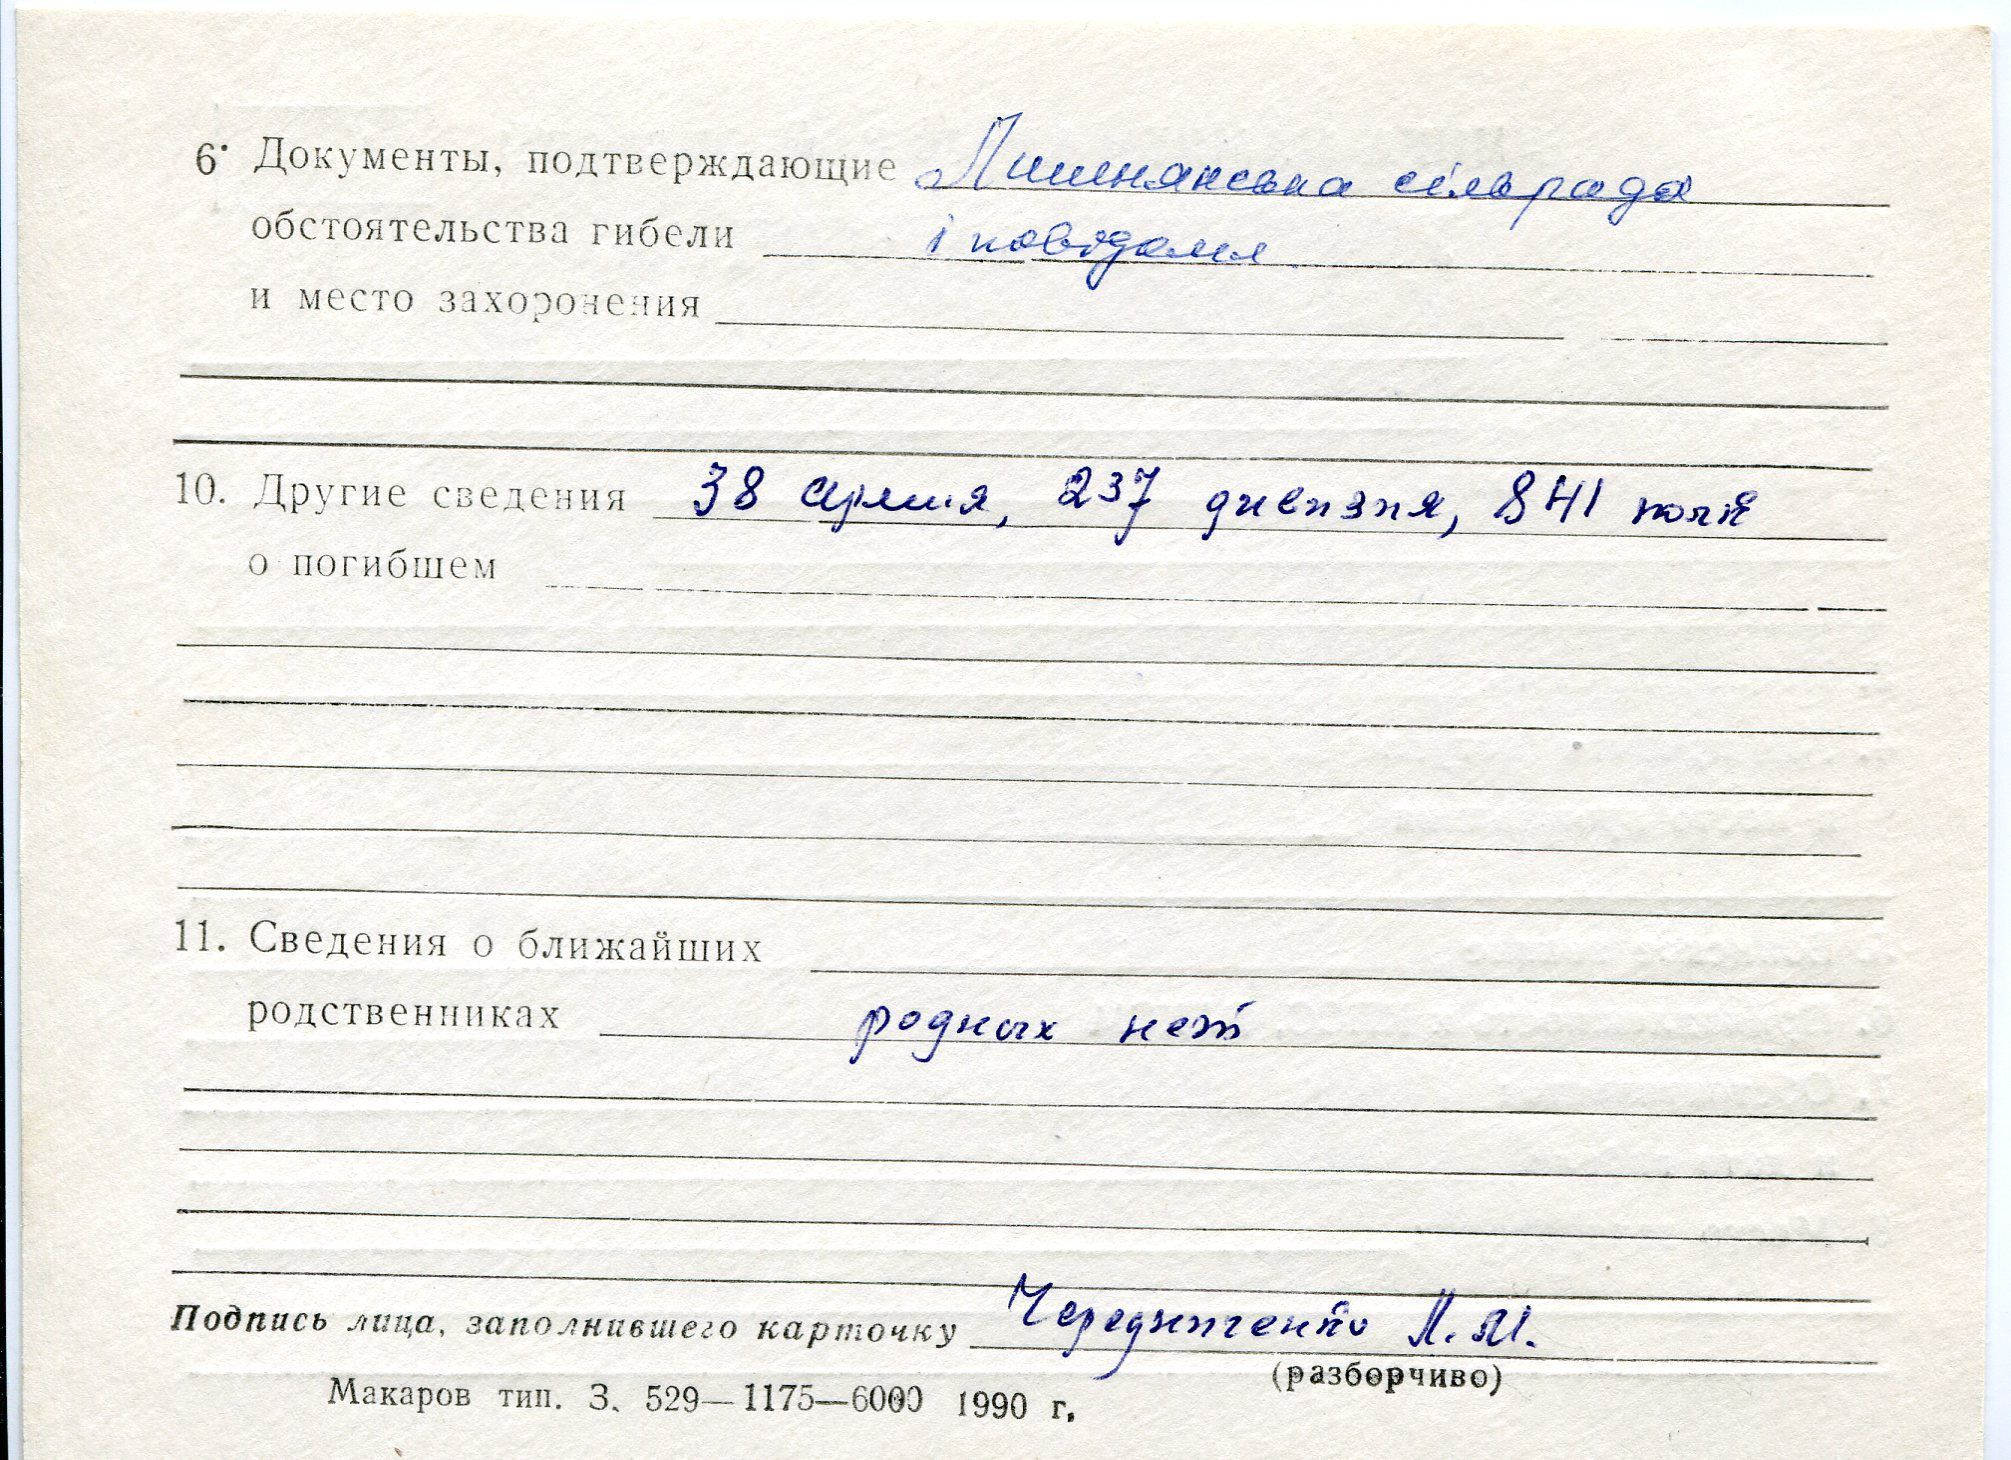 6. Документы, подтверждающие Лишнянська сільрада
обстоятельства гибели і повідомл.
и место захоронения
10. Другие сведения 38 армия, 237 дивизия, 841 полк
о погибшем
11. Сведения о ближайших
родственниках родных нет
Подпись лица, заполнившего карточку Чередниченко Л. М.
(разборчиво)
Макаров тип. З. 529—1175—6000 1990 г.